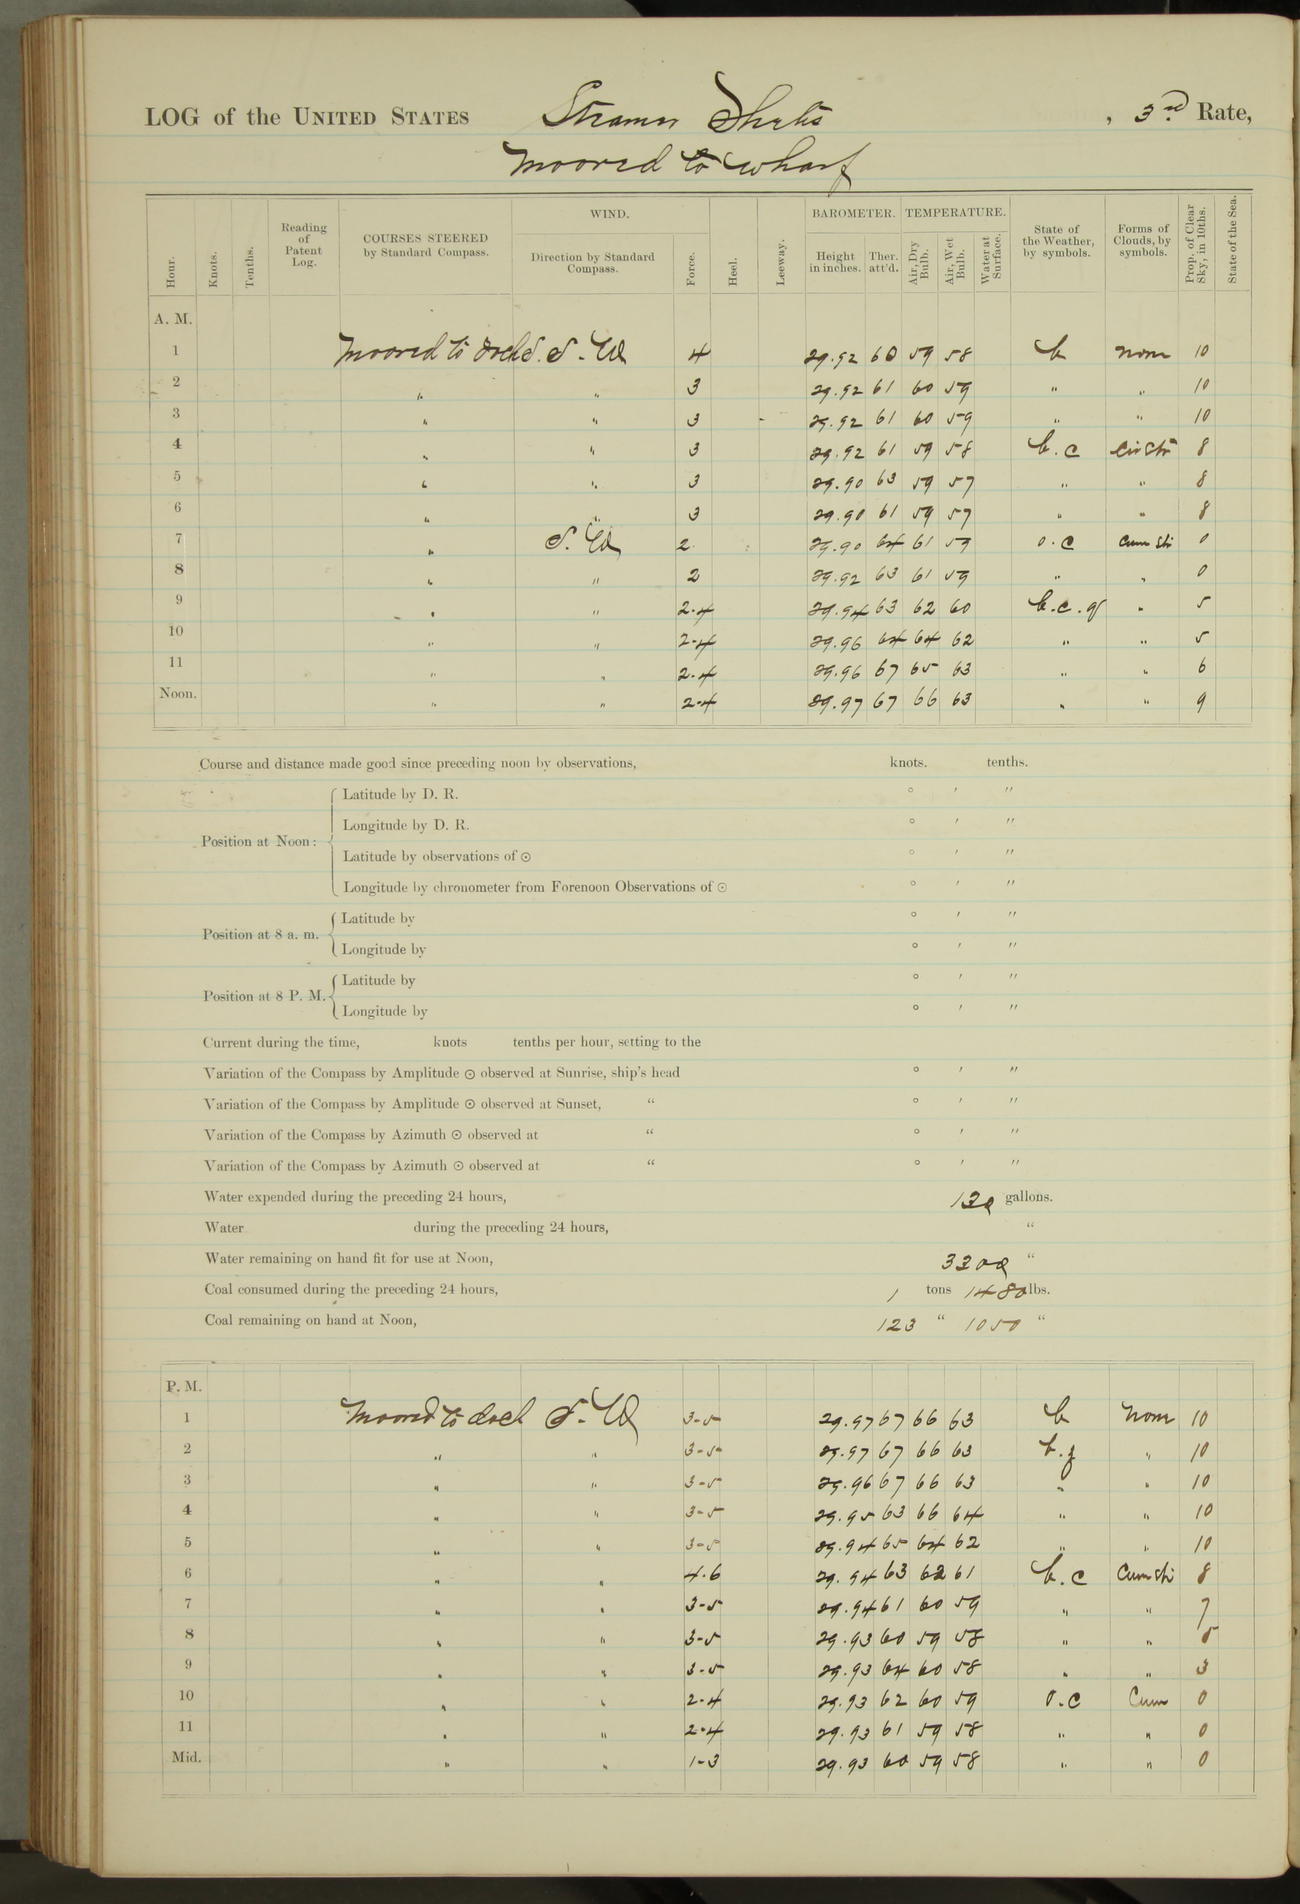 LOG of the UNITED STATES Steamer Thetis , 3rd Rate,
Moored to wharf
Hour. Knots. Tenths. Reading of Patent Log. COURSES STEERED by Standard Compass. WIND. Direction by Standard Compass. Force. Heel. Leeway. BAROMETER. Height in inches. Ther. att'd. TEMPERATURE. Air, Dry Bulb. Air, Wet Bulb. Water at Surface. State of the Weather, by symbols. Forms of Clouds, by symbols. Prop. of Clear Sky, in 10ths. State of the Sea.
A. M.
1 Moored to dock S. S. W 4 29.92 60 59 58 b none 10
2 " " 3 29.92 61 60 59 " " 10
3 " " 3 29.92 61 60 59 " " 10
4 " " 3 29.92 61 59 58 b.c Cir Str 8
5 " " 3 29.90 63 59 57 " " 8
6 " " 3 29.90 61 59 57 " " 8
7 " S. W 2 29.90 64 61 59 o.c Cum Str 0
8 " " 2 29.92 63 61 59 " " 0
9 " " 2-4 29.94 63 62 60 b.c.q " 5
10 " " 2-4 29.96 64 64 62 " " 5
11 " " 2-4 29.96 67 65 63 " " 6
Noon. " " 2-4 29.97 67 66 63 " " 9
Course and distance made good since preceding noon by observations, knots. tenths.
Position at Noon: Latitude by D. R. ° ′ ″
Longitude by D. R. ° ′ ″
Latitude by observations of ⊙ ° ′ ″
Longitude by chronometer from Forenoon Observations of ⊙ ° ′ ″
Position at 8 a. m. Latitude by ° ′ ″
Longitude by ° ′ ″
Position at 8 P. M. Latitude by ° ′ ″
Longitude by ° ′ ″
Current during the time, knots tenths per hour, setting to the
Variation of the Compass by Amplitude ⊙ observed at Sunrise, ship's head ° ′ ″
Variation of the Compass by Amplitude ⊙ observed at Sunset, " ° ′ ″
Variation of the Compass by Azimuth ⊙ observed at " ° ′ ″
Variation of the Compass by Azimuth ⊙ observed at " ° ′ ″
Water expended during the preceding 24 hours, 130 gallons.
Water during the preceding 24 hours, "
Water remaining on hand fit for use at Noon, 3300 "
Coal consumed during the preceding 24 hours, 1 tons 1480 lbs.
Coal remaining on hand at Noon, 123 " 1050 "
P. M.
1 Moored to dock S. W 3-5 29.97 67 66 63 b None 10
2 " " 3-5 29.97 67 66 63 b.q " 10
3 " " 3-5 29.96 67 66 63 " " 10
4 " " 3-5 29.95 63 66 64 " " 10
5 " " 3-5 29.94 65 64 62 " " 10
6 " " 4-6 29.94 63 62 61 b.c Cum Str 8
7 " " 3-5 29.94 61 60 59 " " 7
8 " " 3-5 29.93 60 59 58 " " 5
9 " " 3-5 29.93 64 60 58 " " 3
10 " " 2-4 29.93 62 60 59 o.c Cum 0
11 " " 2-4 29.93 61 59 58 " " 0
Mid. " " 1-3 29.93 60 59 58 " " 0